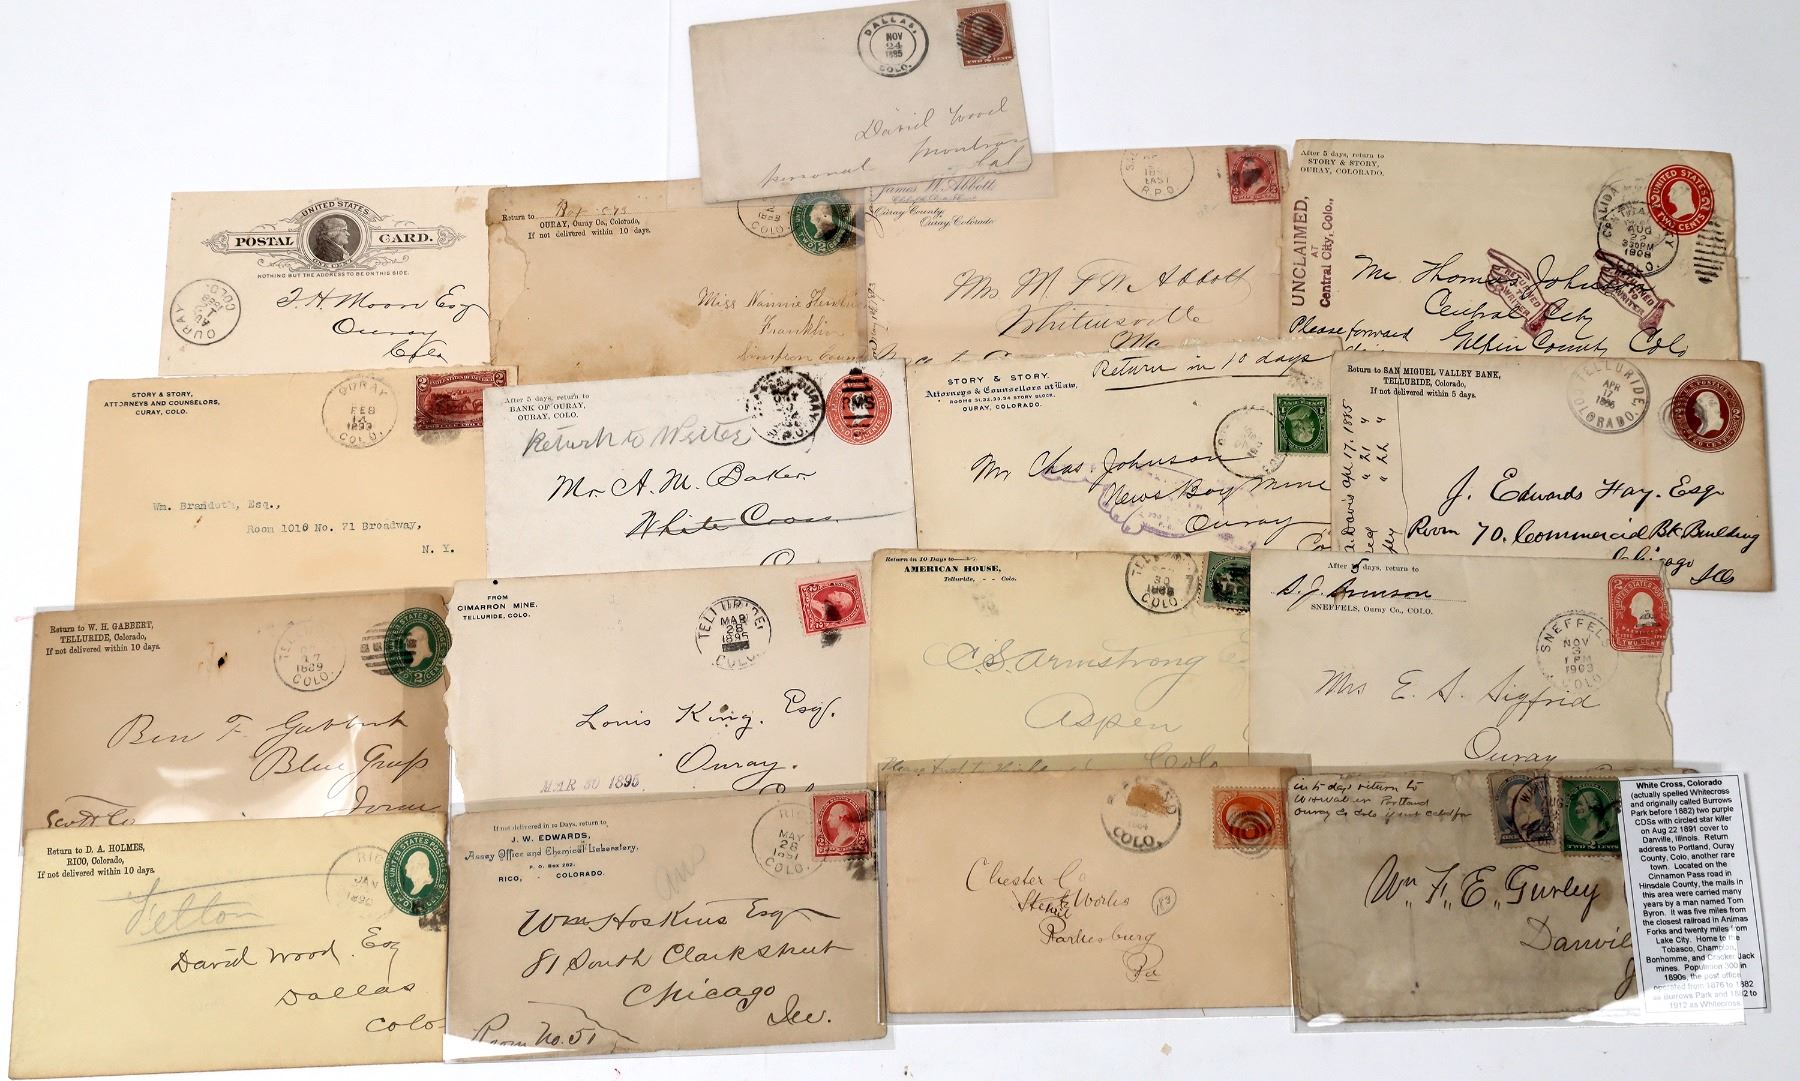 DALLAS,
NOV
24
1885
COLO.
TWO CENTS
David Wood
Montrose
Col
personal
UNITED STATES
POSTAL CARD.
ONE CENT
NOTHING BUT THE ADDRESS TO BE ON THIS SIDE.
OURAY
COLO.
T. H. Moon Esq
Ouray
Colo
Return to Box 573
OURAY, Ouray Co., Colorado,
If not delivered within 10 days.
COLO.
Miss Nannie
Franklin
Simpson
James W. Abbott
Ouray County,
Ouray, Colorado
EAST
R.P.O.
Mrs M. T. W. Abbott
Whitinsville
After 5 days, return to
STORY & STORY,
OURAY, COLORADO.
UNCLAIMED,
AT
Central City, Colo.,
UNITED STATES
TWO CENTS
AUG
22
3 30 PM
1908
RETURNED
TO
WRITER
RETURNED
TO
WRITER
Mr. Thomas Johnson
Central City
Gilpin County Colo
Please forward
STORY & STORY,
ATTORNEYS AND COUNSELORS,
OURAY, COLO.
OURAY
FEB
14
1899
COLO.
Wm. Brandoth, Esq.,
Room 1016 No. 71 Broadway,
N. Y.
After 5 days, return to
BANK OF OURAY,
OURAY, COLO.
Return to Writer
OURAY
R.P.O.
Mr. A. M. Baker
White Cross
STORY & STORY.
Attorneys & Counsellors at Law,
ROOMS 31,32,33,34 STORY BLOCK.
OURAY, COLORADO.
Return in 10 days
Mr Chas Johnson
News Boy Mine
Ouray
Return to SAN MIGUEL VALLEY BANK,
TELLURIDE, Colorado,
If not delivered within 5 days.
TELLURIDE,
APR
17
COLORADO.
Davis Apr. 17. 1885
" 21 "
" 22 "
J. Edwards Fay. Esqr
Room 70. Commercial Bk Building
Chicago
Ills
Return to W. H. GABBERT,
TELLURIDE, Colorado,
If not delivered within 10 days.
17
1889
COLO.
Ben F. Gabbert
Blue Grass
Iowa
Scott Co
FROM
CIMARRON MINE.
TELLURIDE, COLO.
TELLURIDE,
MAR
28
1895
COLO.
Louis King, Esq.
Ouray.
MAR 30 1895
Return in 10 Days to
AMERICAN HOUSE,
Telluride, - - Colo.
30
COLO.
C. S. Armstrong
Aspen
Colo
After 5 days, return to
SNEFFELS, Ouray Co., COLO.
SNEFFELS
NOV
3
1 PM
COLO
TWO CENTS
Mrs E. S. Sigfrid
Ouray
Return to D. A. HOLMES,
RICO, Colorado,
If not delivered within 10 days.
RICO
JAN
Felton
David Wood. Esq
Dallas
Colo
If not delivered in 10 Days, return to
J. W. EDWARDS,
Assay Office and Chemical Laboratory,
P. O. Box 282.
RICO, - COLORADO.
RICO
MAY
28
1891
COLO.
ans
Wm Hoskins Esqr
81 South Clark street
Chicago
Room No. 51
COLO.
Chester Co
Works
Parkesburg
Pa
in 5 days return to
Portland
Ouray Co Colo
AUG
Wm. F. E. Gurley
Danvil
White Cross, Colorado
(actually spelled Whitecross
and originally called Burrows
Park before 1882) two purple
CDSs with circled star killer
on Aug 22 1891 cover to
Danville, Illinois. Return
address to Portland, Ouray
County, Colo, another rare
town. Located on the
Cinnamon Pass road in
Hinsdale County, the mails in
this area were carried many
years by a man named Tom
Byron. It was five miles from
the closest railroad in Animas
Forks and twenty miles from
Lake City. Home to the
Tobasco, Champion,
Bonhomme, and Cracker Jack
mines. Population 300 in
1890s, the post office
operated from 1876 to 1882
as Burrows Park and 1882 to
1912 as Whitecross.